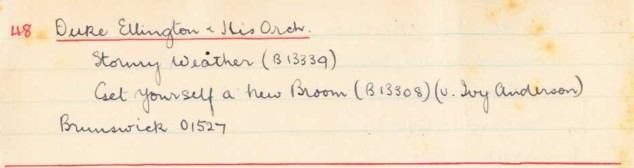 48 Duke Ellington & His Orch.
Stormy Weather (B 13339)
Get Yourself a New Broom (B 13308) (v. Ivy Anderson)
Brunswick 01527